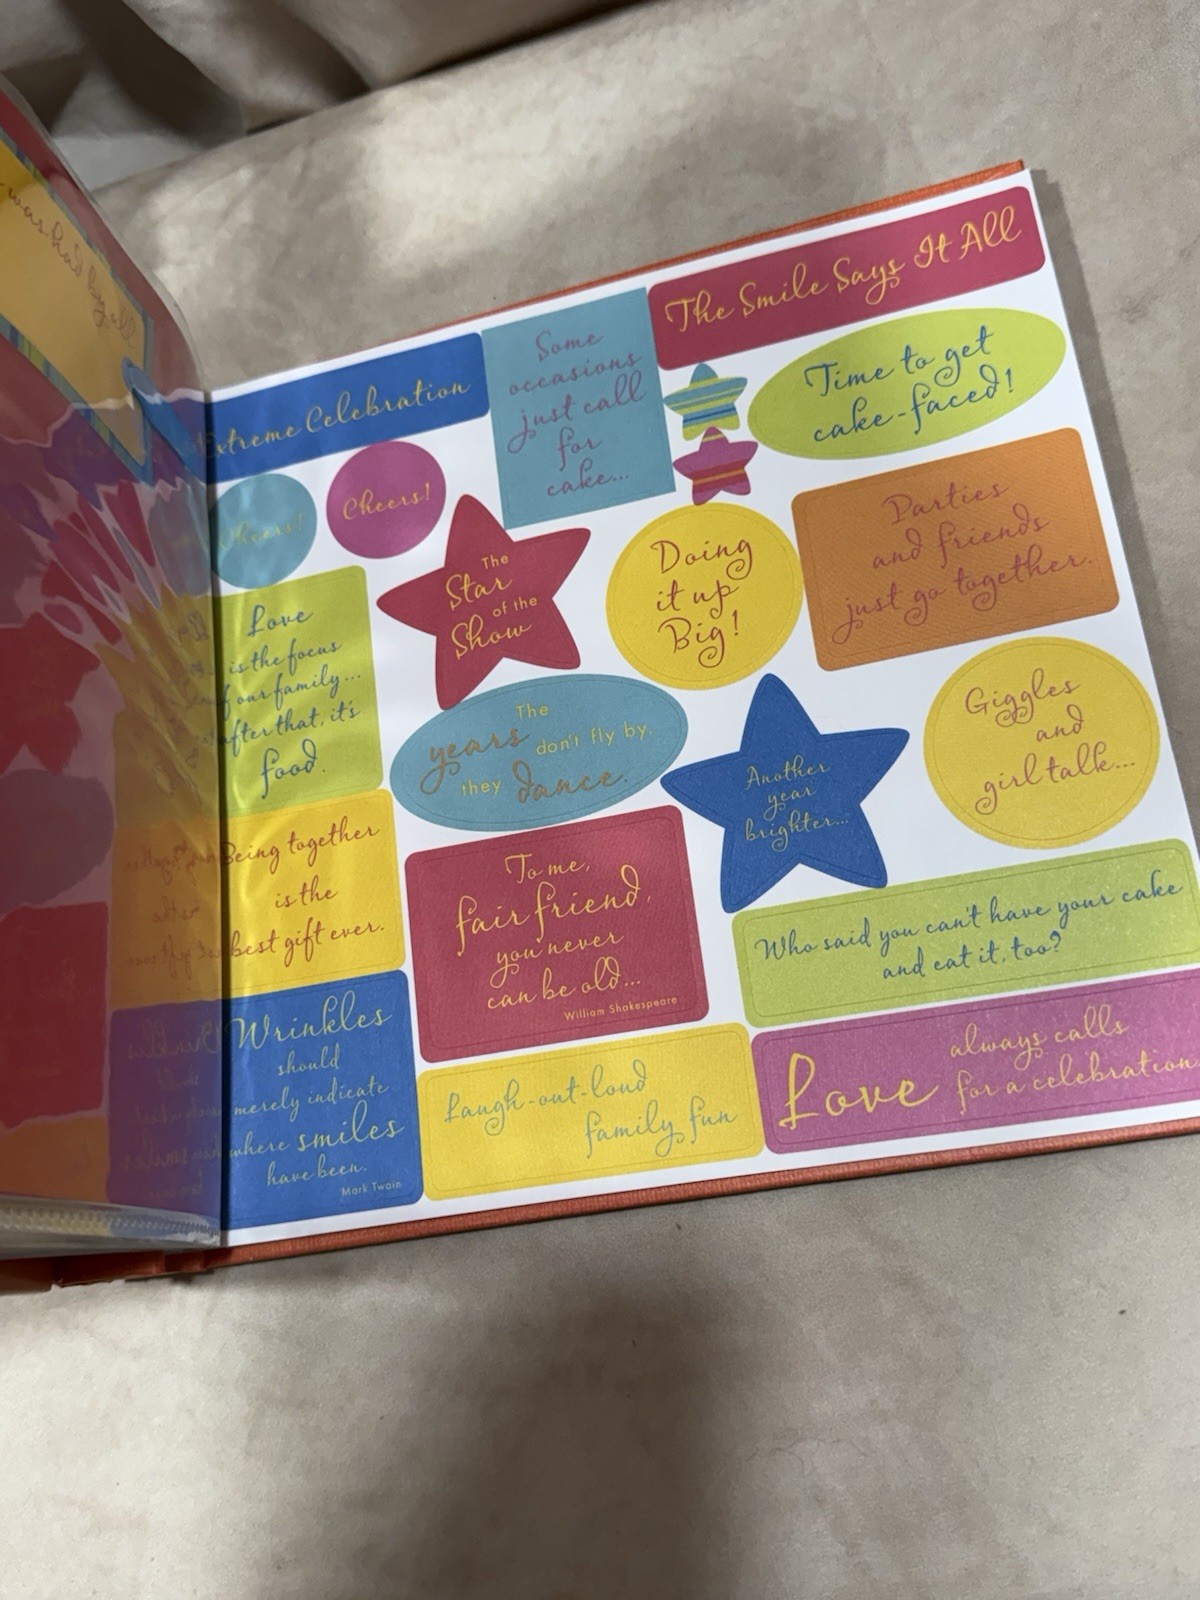 was had by all
The Smile Says It All
Extreme Celebration
Some
occasions
just call
for
cake...
Time to get
cake-faced!
Cheers!
Cheers!
The
Star
of the
Show
Doing
it up
Big!
Parties
and friends
just go together.
Love
is the focus
of our family...
after that, it's
food.
The
years don't fly by,
they dance.
Another
year
brighter...
Giggles
and
girl talk...
Being together
is the
best gift ever.
To me,
fair friend,
you never
can be old...
William Shakespeare
Who said you can't have your cake
and eat it, too?
Wrinkles
should
merely indicate
where smiles
have been.
Mark Twain
Laugh-out-loud
family fun
Love always calls
for a celebration